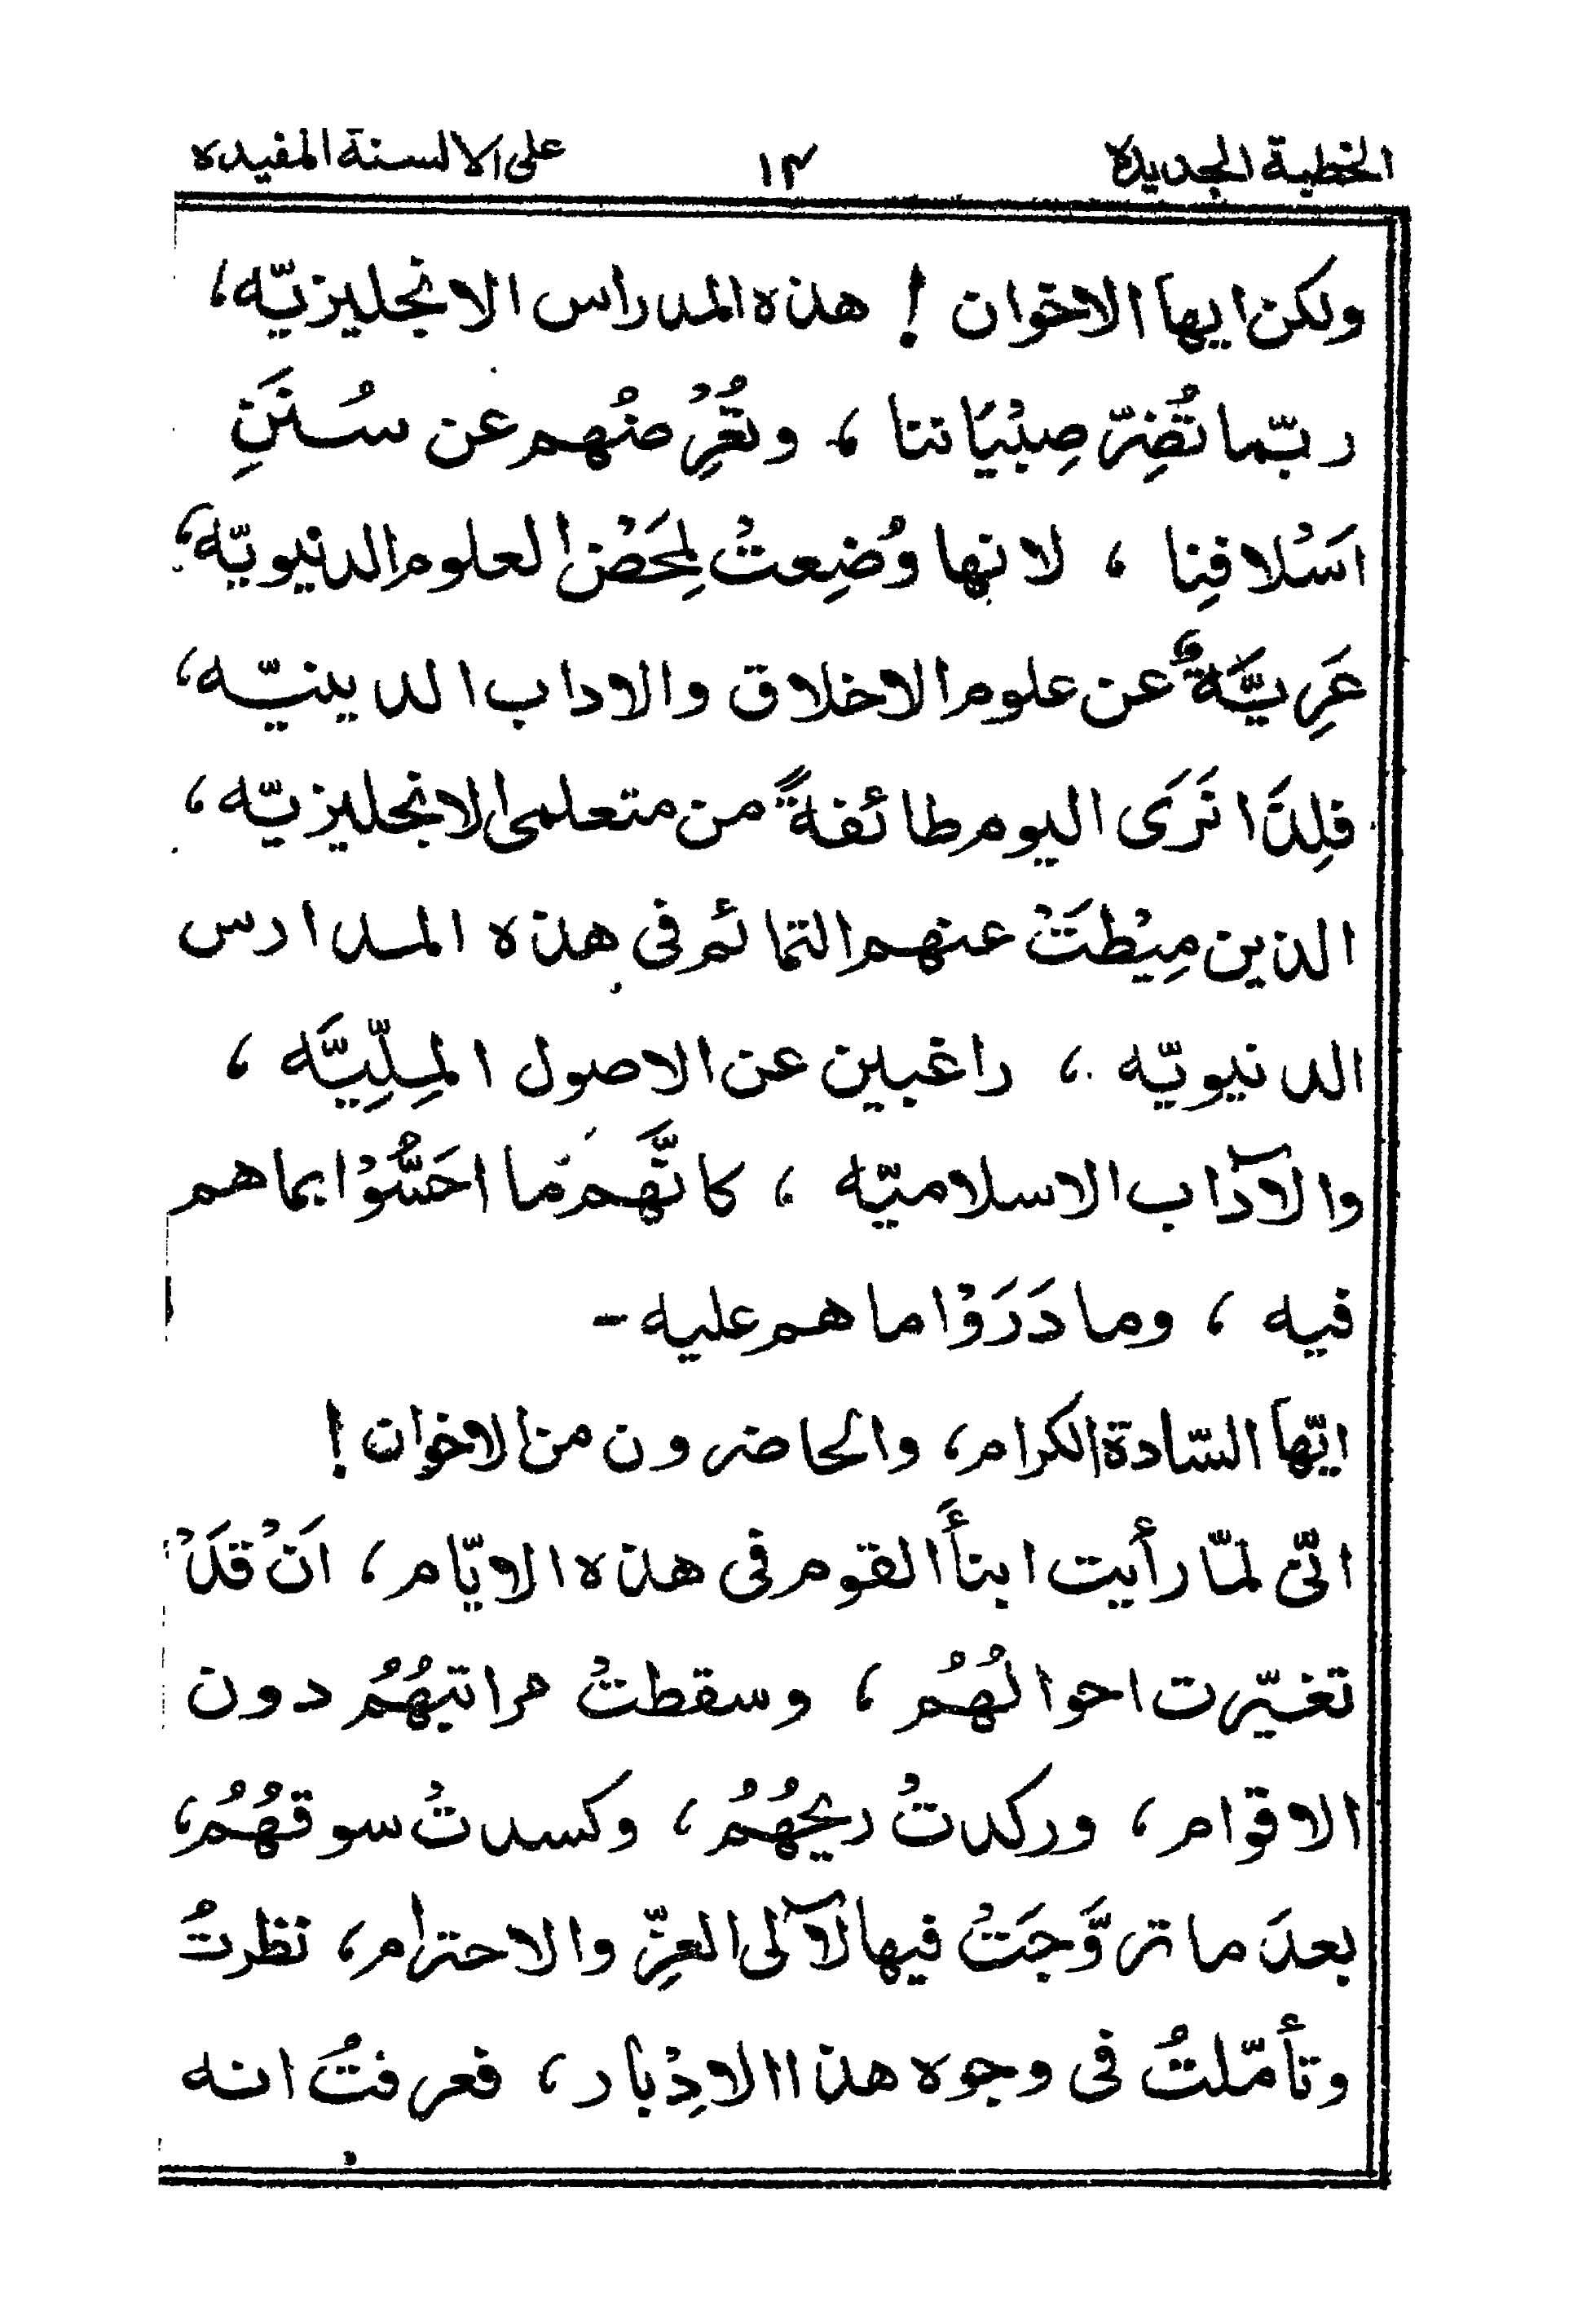 الخطبة الجديده ١٣ على الالسنة المفيده
ولكن ايها الاخوان ! هذه المدراس الانجليزيّه،
ربّما تُضِرّ صِبْيَاننا ، وتُعْرِضُهم عن سُنَنِ
اَسْلافِنا ، لانها وُضِعتْ لِمَحْضْ العلوم الدنيويّه،
عَرِيَّةٌ عن علوم الاخلاق والاداب الدينيّه،
فلِذَا نَرَى اليوم طائفةً من متعلمى الانجليزيّه،
الذين مِيْطَتْ عنهم التمائم فى هذه المدارس
الدنيويّه ، راغبين عن الاصول المِلِّيَّه ،
والآدَاب الاسلاميّه ، كانَّهم مَا احَسُّوْا بما هم
فيه ، وما دَرَوْا ما هم عليه -
ايّها السّادة الكرام، والحاضرون من الاخوان !
انّى لمّا رأيت ابنأَ القوم فى هذه الايّام، اَنْ قَدْ
تغيّرت احوالُهُم ، وسقطتْ مراتبُهُم دون
الاقوام، وركدتْ ريحُهُم، وكسدتْ سوقهُم،
بعدَ ما تروَّجَتْ فيها لآلى العزِّ والاحترام، نظرتُ
وتأمّلتُ فى وجوه هذا الادْبار، فعرفتُ انه